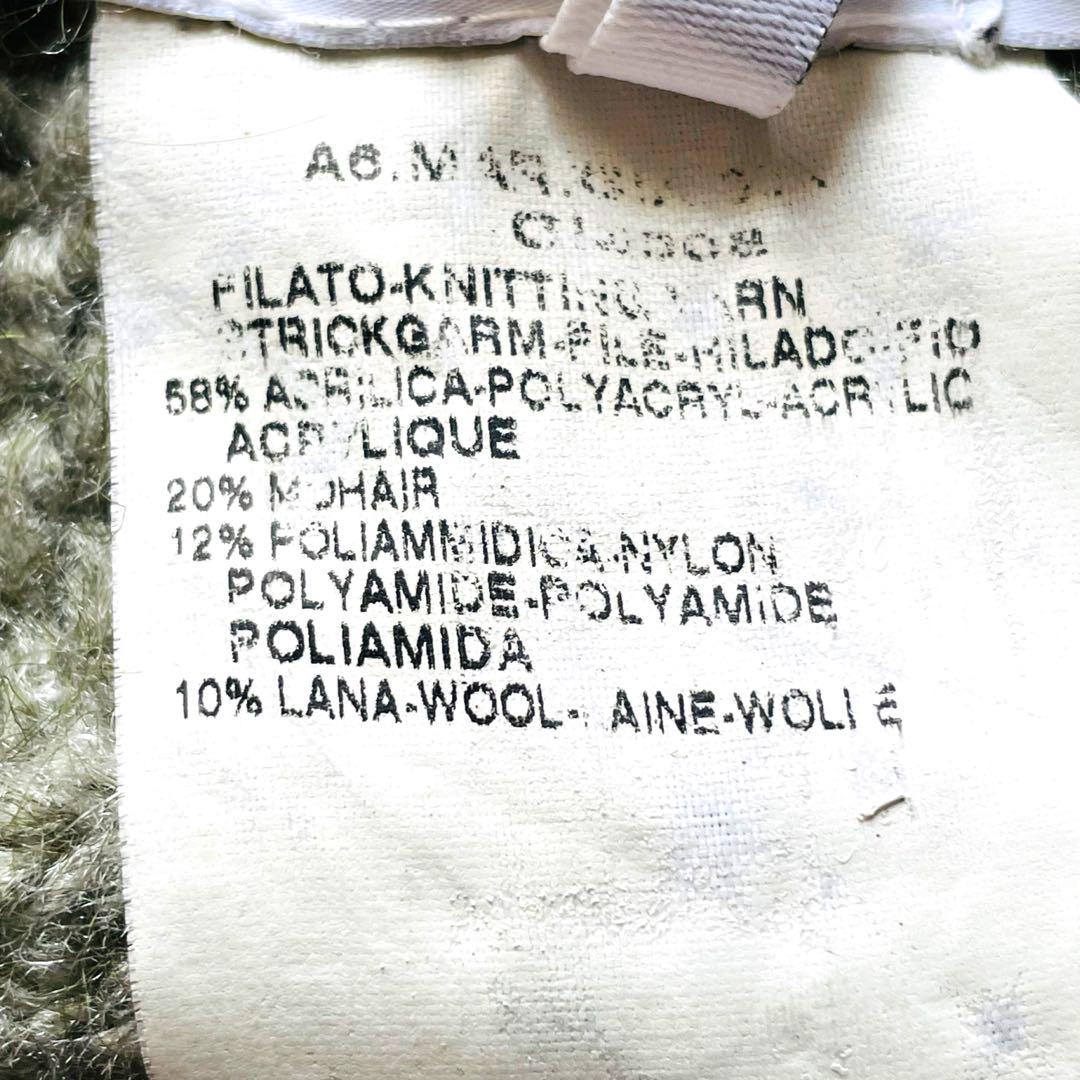 FILATO-KNITTING YARN
STRICKGARM-FILE-HILADO-FIO
58% ACRILICA-POLYACRYL-ACRYLIC
ACRYLIQUE
20% MOHAIR
12% POLIAMMIDICA-NYLON
POLYAMIDE-POLYAMIDE
POLIAMIDA
10% LANA-WOOL-LAINE-WOLLE